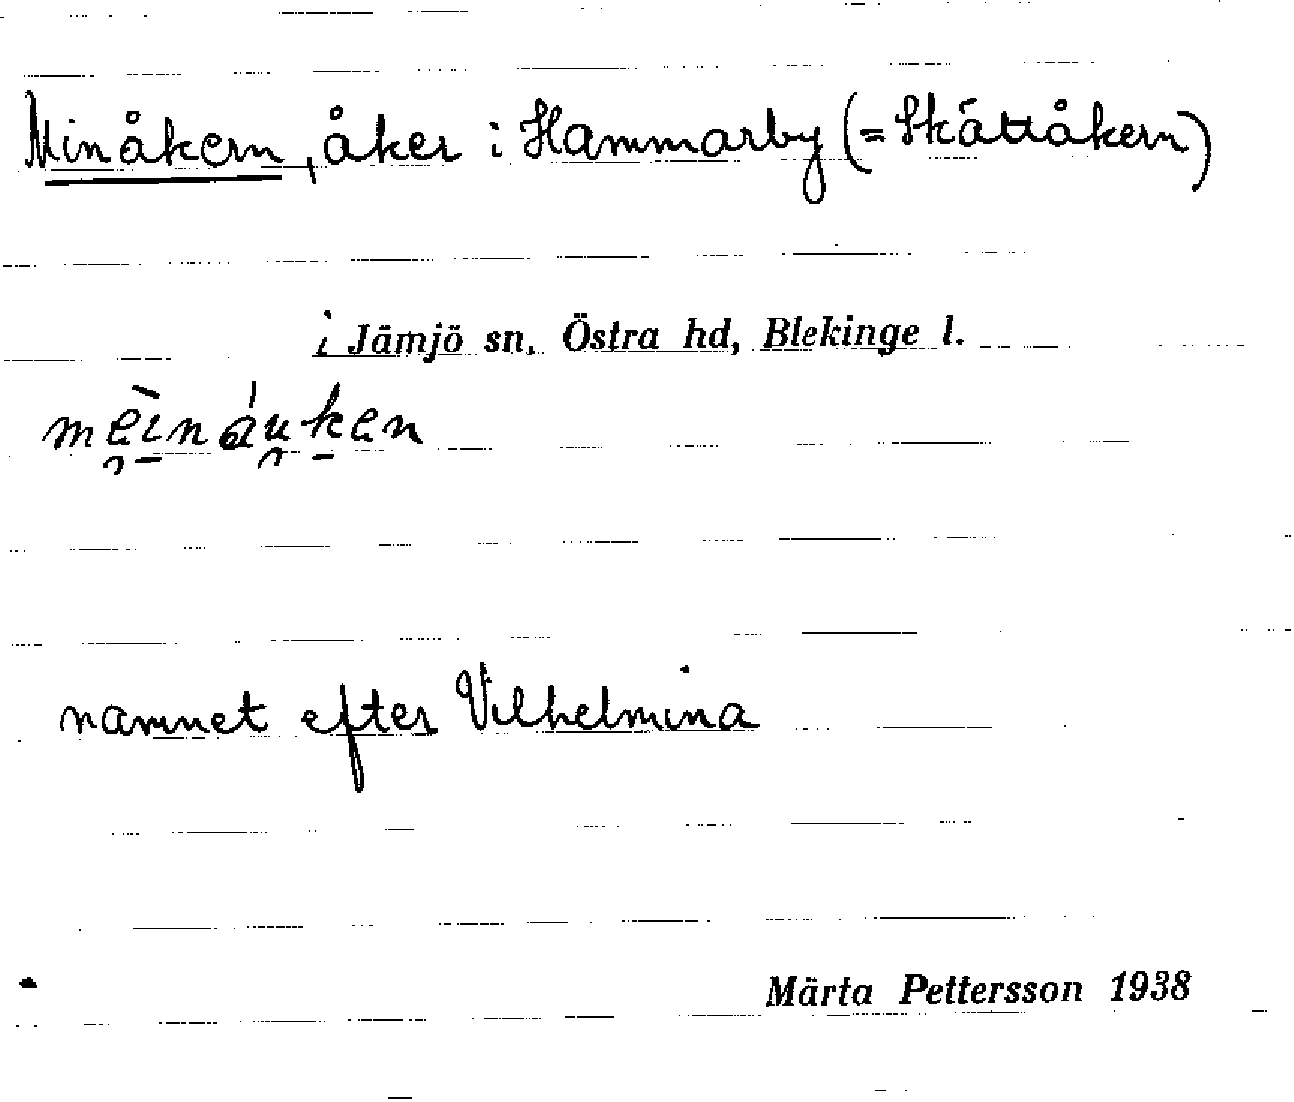 Minåkern, åker i Hammarby (= Skåttåkern)
i Jämjö sn, Östra hd, Blekinge l.
mèi̯náu̯ken
namnet efter Vilhelmina
Märta Pettersson 1938